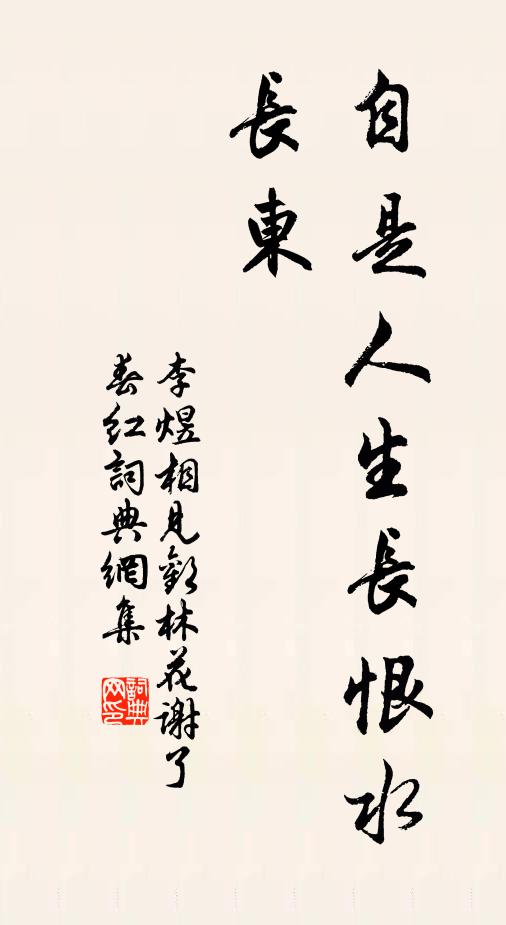 自是人生長恨水
長東
李煜相見歡林花謝了
春紅詞典網集
詞典
网印